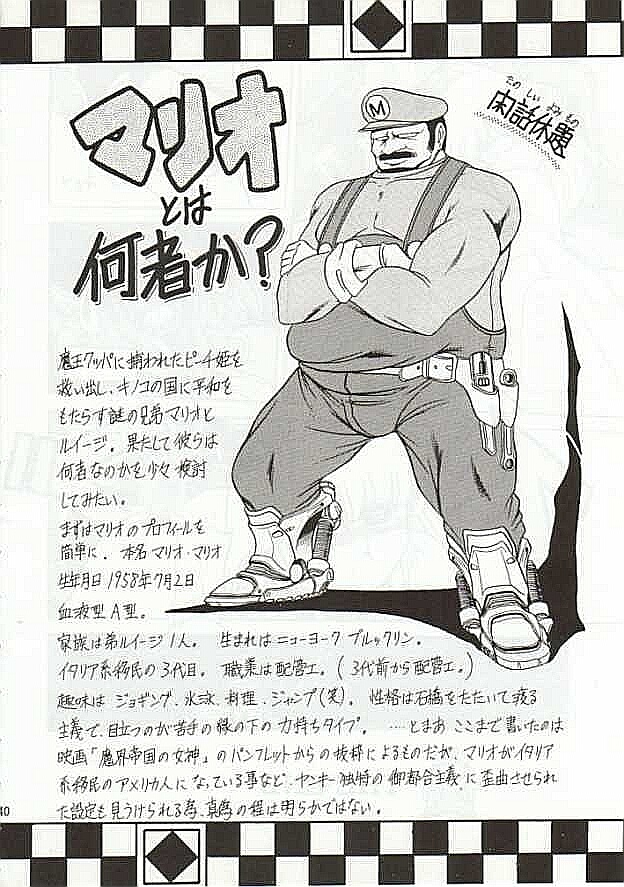 マリオ
とは
何者か?
たの しい よみ もの
閑話休題
M
魔王クッパに捕われたピーチ姫を
救い出し、キノコの国に平和を
もたらす謎の兄弟マリオと
ルイージ。果たして彼らは
何者なのかを少々検討
してみたい。
まずはマリオのプロフィールを
簡単に。本名 マリオ・マリオ
生年月日 1958年7月2日
血液型 A型。
家族は弟ルイージ1人。 生まれはニューヨーク ブルックリン。
イタリア系移民の3代目。 職業は配管工。(3代前から配管工。)
趣味は ジョギング、水泳、料理、ジャンプ(笑)。 性格は石橋をたたいて渡る
主義で、目立つのが苦手の縁の下の力持ちタイプ。 ……とまあ ここまで書いたのは
映画「魔界帝国の女神」のパンフレットからの抜粋によるものだが、マリオがイタリア
系移民のアメリカ人になっている事など、ヤンキー独特の御都合主義に歪曲させられ
た設定も見うけられる為、真偽の程は明らかではない。
40